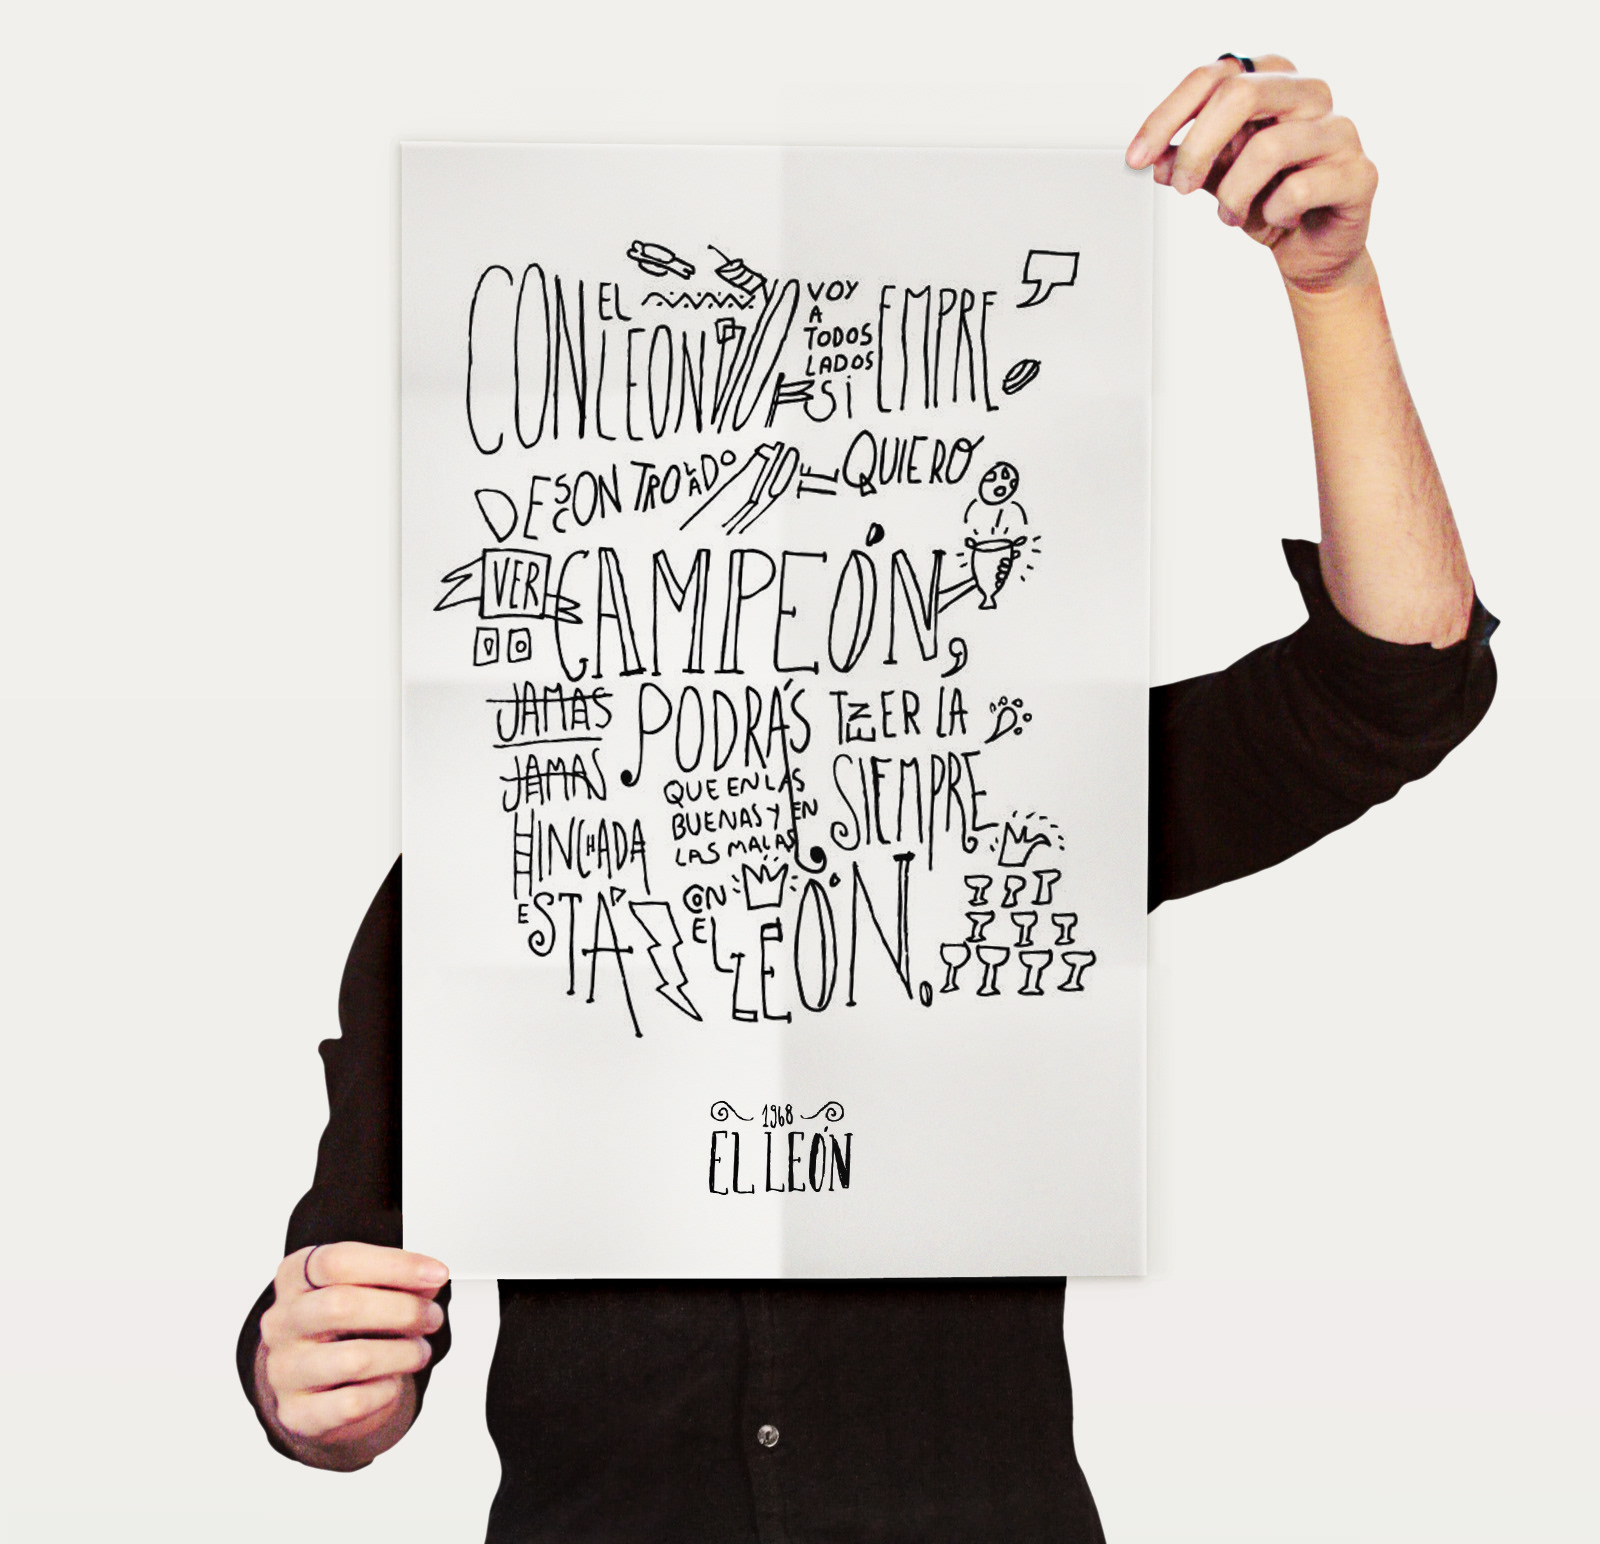 CON EL LEON YO VOY A TODOS LADOS SIEMPRE
DESCONTROLADO YO TE QUIERO
VER CAMPEÓN,
JAMAS JAMAS PODRÁS TENER LA
HINCHADA QUE EN LAS BUENAS Y EN LAS MALAS SIEMPRE
ESTÁ CON EL LEÓN.
1968
EL LEÓN